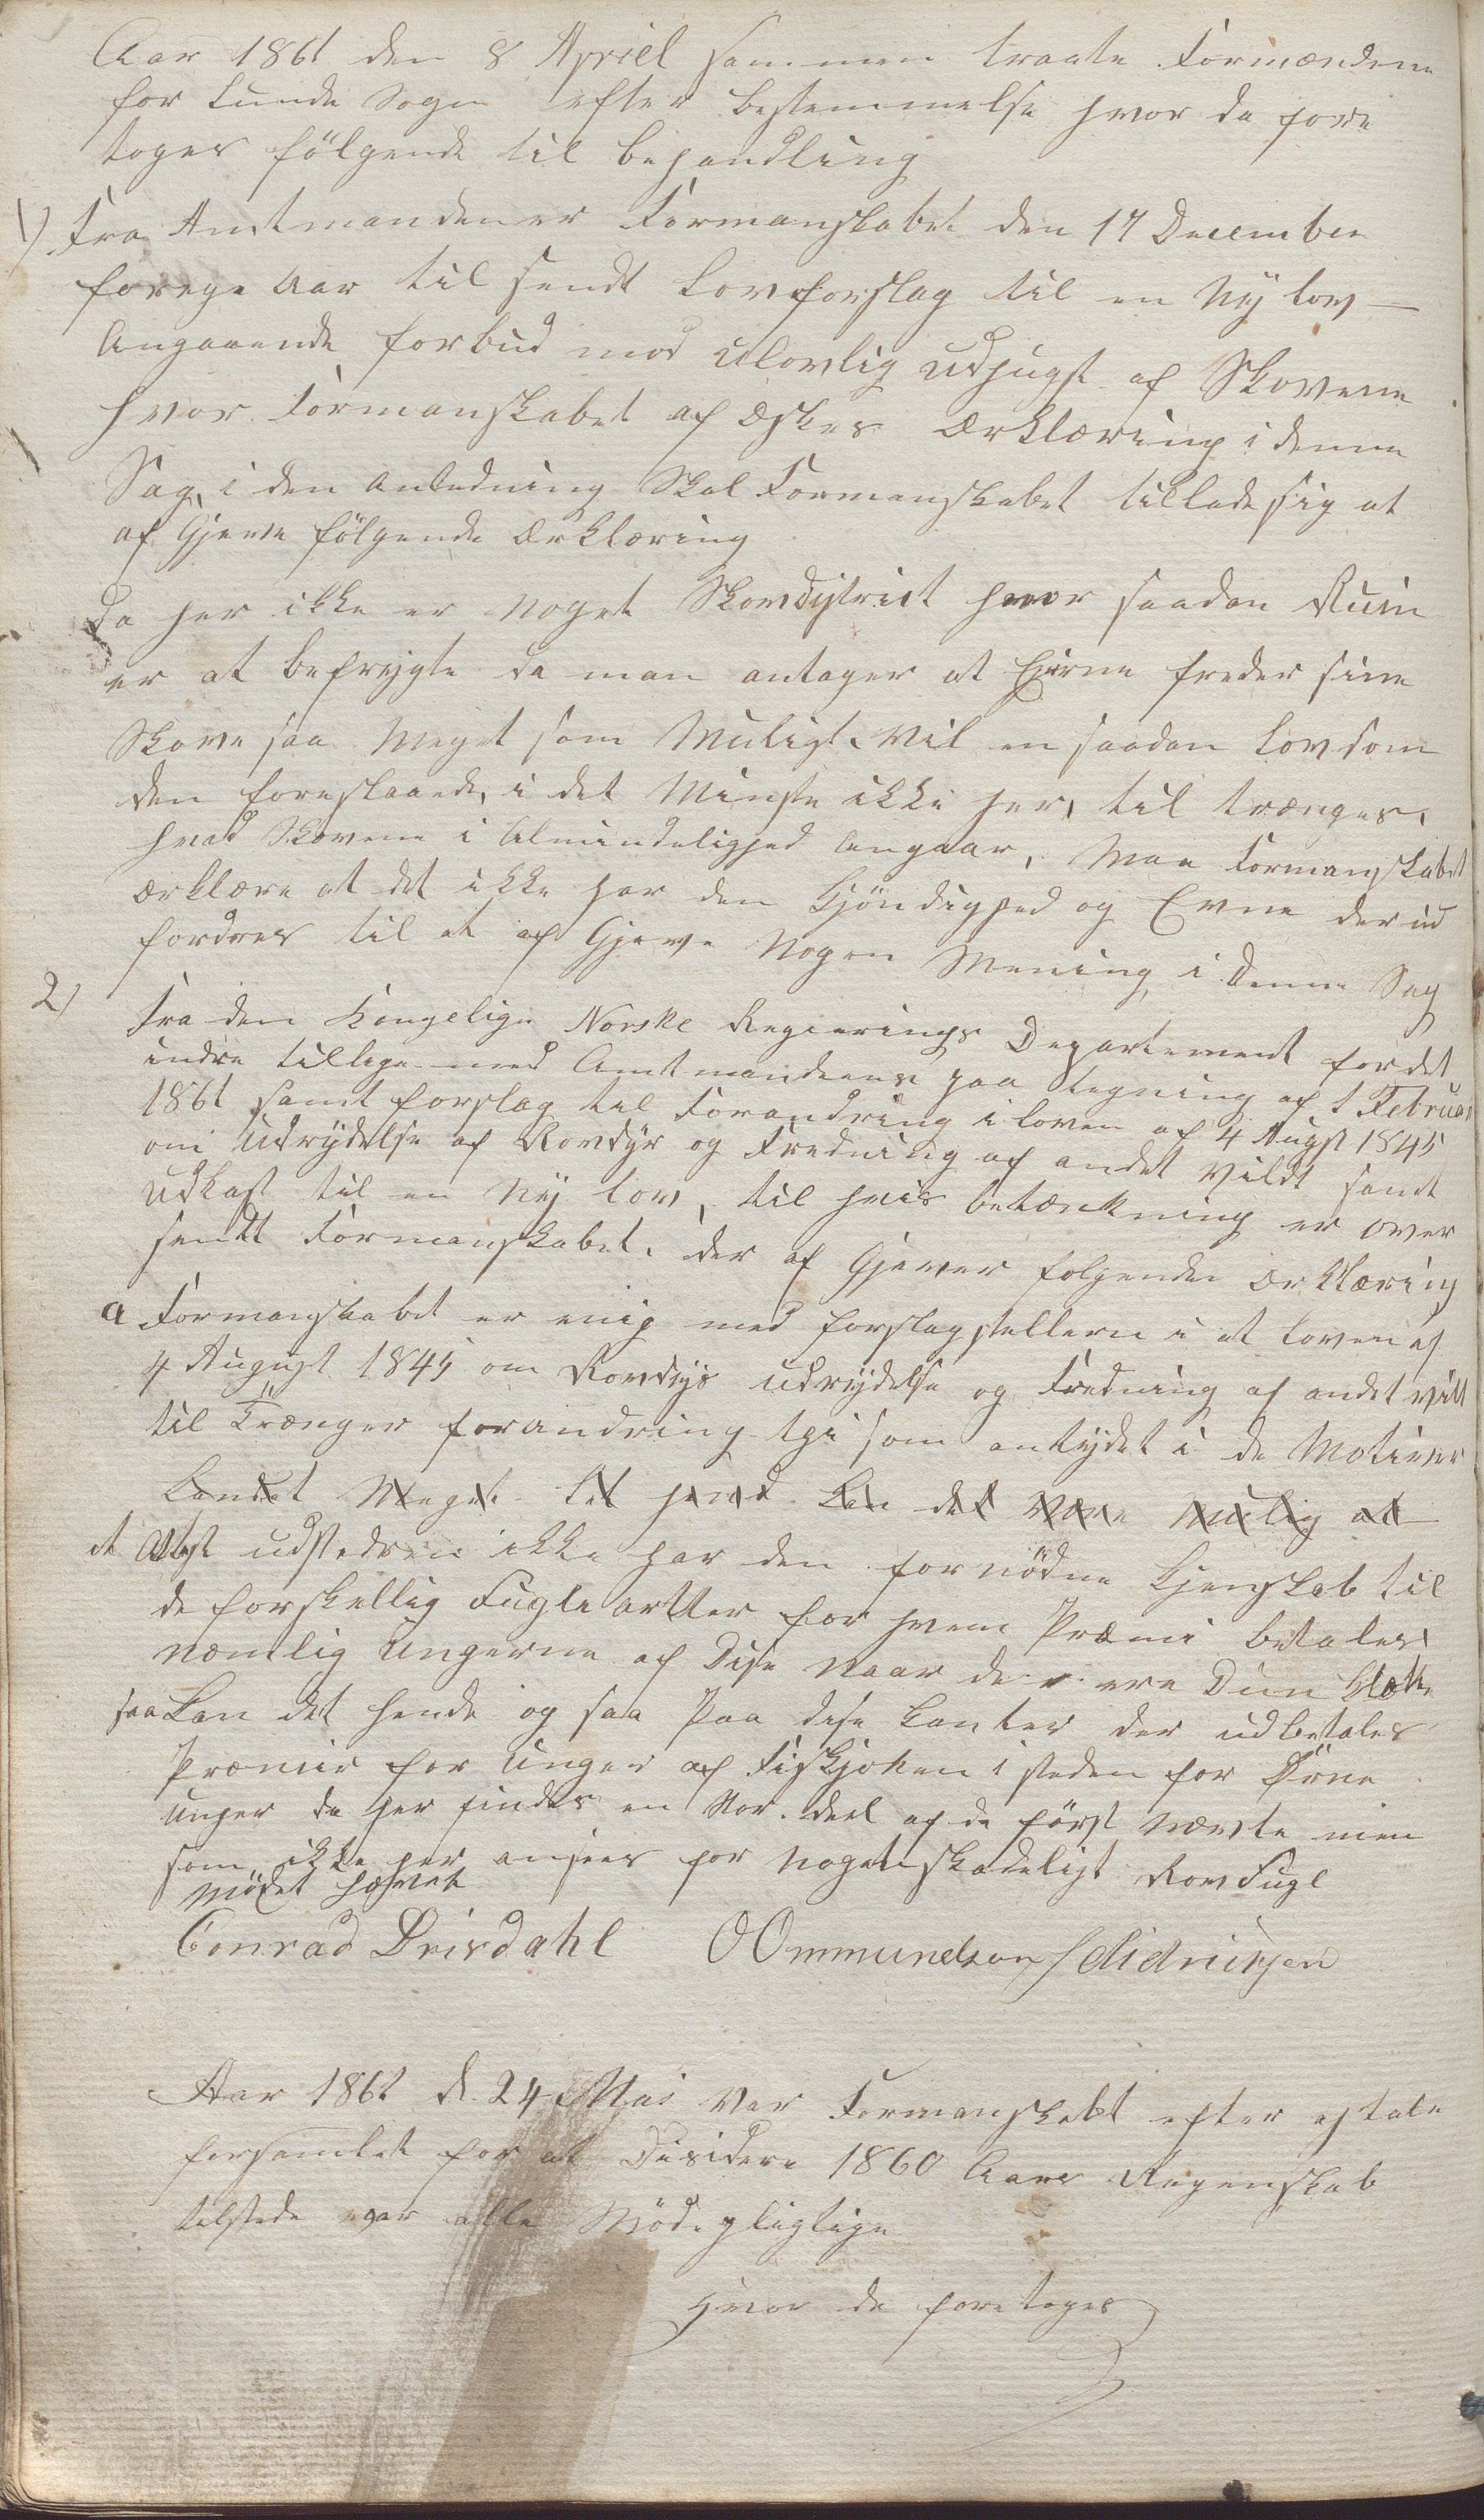 Aar 1861 den 8 Apriel sammen traate Formændene
for Lunde Sogn efter bestemmelse hvor da fore
toges fölgende til behandling
1) Fra Amtmanden er Formanskabet den 17 December
forege Aar til sendt Lovforslag til en Ny lov –
Angaaende forbud mod ulovlig udhugst af Skovene
hvor Formanskabet af Æskes Ærklæring i denne
Sag, i den Anledning Skal Formanskabet tillade sig at
af Gjeve fölgende Ærklæring
Da her ikke er noget Skovdistrict hvor saadan Ruin
er at befrygte da man antager at Eierne freder sine
Skove saa Meget som Muligt. Vil en saadan Lov som
den foreslaaede, i det Minste ikke her, til trænges,
hvad Skovene i Almindelighed Angaar, Maa Formanskabet
ærklære at det ikke har den Kjöndighed og Evne der ud
fordres til at af Gjeve Nogen Mening i denne Sag
2) Fra den Kongelige Norske Regierings Departement for det
indre tillige med Amtmandens paa tegning af 1 Februar
1861 samt forslag til Forandring i loven af 4 Augst 1845
om Udrydelse af Rovdyr og Fredning af andet Vildt samt
Udkast til en Ny lov, til hvis betænkning er over
sendt Formanskabet. der af Gjever folgende Ærklæring
a Formanskabet er enig med forslagstellern i at loven af
4 August 1845 om Rovdyrs udrydelse og Fredning af andet vilt
til Trænger forandring thi som antydet i de Motiver
Landet Meget let hend kan det være Mulig at
at Attest udstedren ikke har den fornödne Kjenskab til
de forskellig Fugle artter for hvem Præmi betales
nemlig Ungerne af Dise naar de ere Dun klædte
saa kan det hende og saa Paa disse kanter der udbetales
Præmie for Unger af Fiskjoken i steden for Örne
unger da her findes en Stor deel af de först nævnte men
som ikke her ansees for noget skadeligt Rov Fugl
Mödet hævet
Conrad Drisdahl OOmmundsen S Didriksen
Aar 1861 d. 24 Mai var Formanskabt efter aftale
forsamlet for at Disidere 1860 Aars Regenskab
tilstede var alle Mödepligtige
Hvor da foretoges